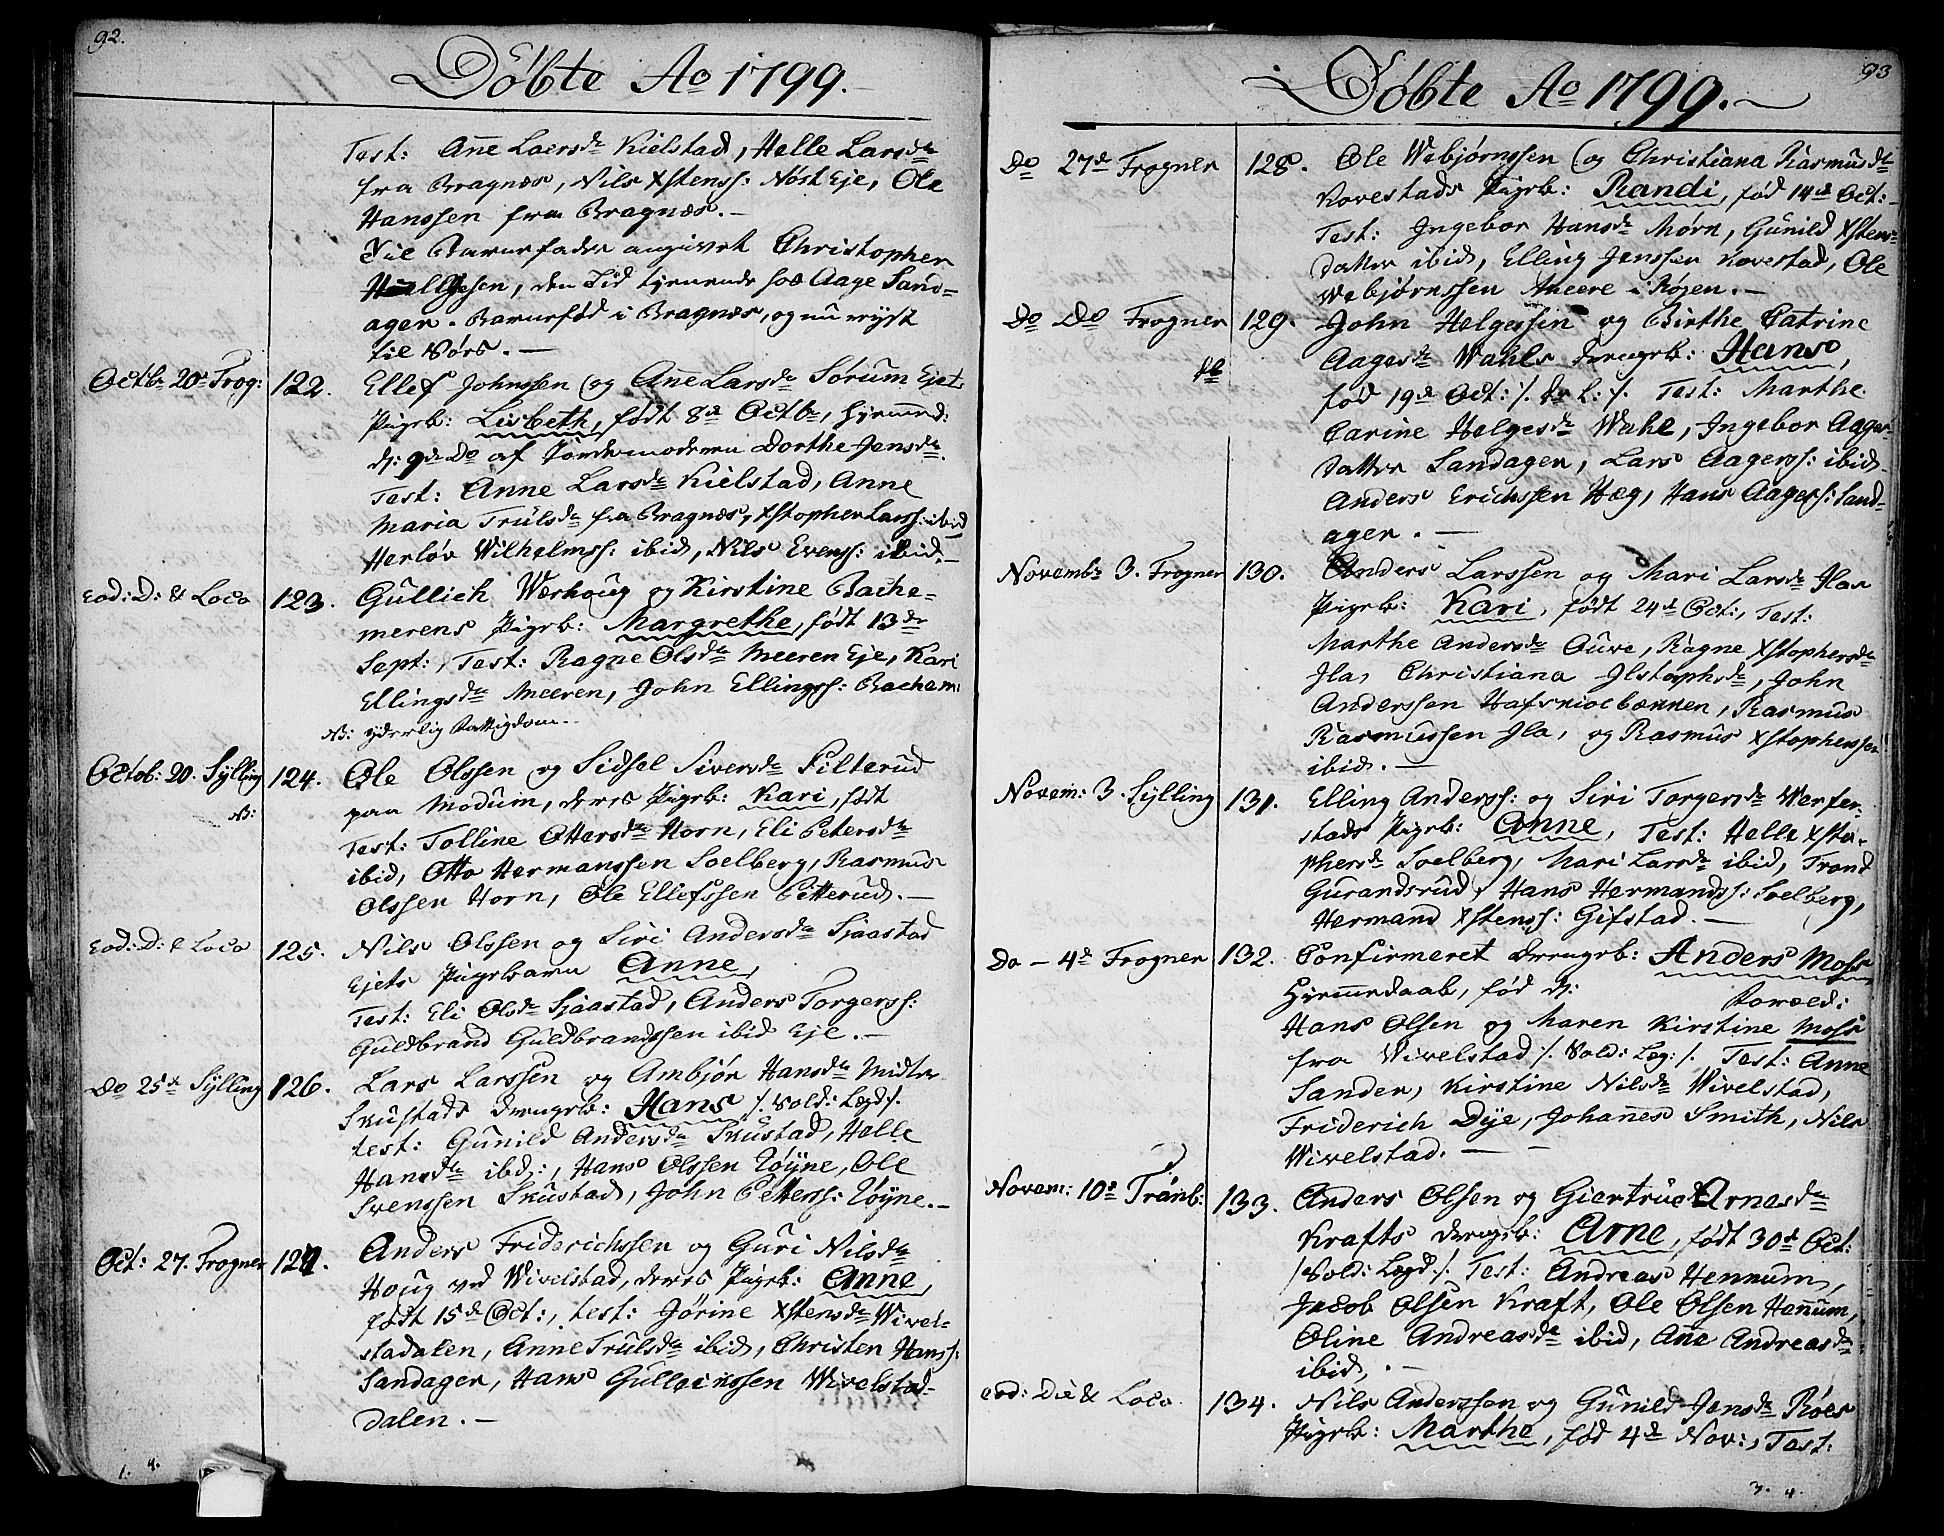 92.
Döbte Ao 1799.
Test: Añe Laersd. Kielstad, Helle Larsd.
fra Bragnæs, Nils Xstenss: Nöst Eje, Ole
Hanssen fra Bragnæs.
Til Barnefader angivet Christopher
Hellgesen, den Tid tjenende hos Aage Sand-
ager. Barnet född i Bragnæs, og nu reyst
til Börs.
Octb. 20d Frog: 122. Ellef Johnssen og Añe Larsd. Sörum Ejet
Pigeb: Lisbeth, födt 8de Octb., hjemmed:
d: 9de Do af Jordemoderen Dorthe Jensd.
Test: Anne Larsd. Kielstad, Anne
Maria Trulsd. fra Bragnæs, Xstopher Larss: ibid
Herlöv Wilhelmss: ibid, Nils Evenss: ibid.
Eod: D: & Loco 123. Gullich Werhoug og Kirstine Bache-
merens Pigeb: Margrethe, födt 13de
Sept:, Test: Ragne Olsd. Meeren Eje, Kari
Ellingsd. Meeren, John Ellingss: Bachem:
NB: yderlig Fattigdom.
Octob: 20. Sylling 124. Ole Olssen og Sidsel Siversd. Filterud
NB: paa Modum, deres Pigeb: Kari, födt
Test: Tolline Ottersd. Horn, Eli Petersd.
ibid, Otto Hermanssen Solberg, Rasmus
Olssen Horn, Ole Ellefssen Pitterud.
Eod: D: & Loco 125. Nils Olssen og Siri Andersd. Sjaastad
Ejets Pigebarn Anne,
Test: Eli Olsd. Sjaastad, Anders Torgerss:
Guldbrand Guldbrandssen ibid Eje.
Do 25d Sylling 126. Lars Larssen og Ambjör Hansd. Midter
Skustads Drengeb: Hans ⁒ Sold: Legd ⁒
test: Gunild Andersd. Skustad, Helle
Hansd. ibid:, Hans Olssen Töyne, Ole
Svenssen Skustad, John Petterss: Töyne.
Oct: 27. Frogner 127. Anders Friderichssen og Guri Nilsd.
Houg ved Wivelstad, deres Pigeb: Anne,
födt 15de Oct:, test: Jörine Xstensd. Wivel-
stadalen, Anne Trulsd. ibid, Christen Hanss:
Sandager, Hans Gulleinssen Wivelstad-
dalen.
93
Döbte Ao 1799.
Do 27d Frogner 128. Ole Webjörnssen og Christiana Rasmusd.
Kovestads Pigeb: Randi, föd 14de Oct:
Test: Ingebor Hansd. Mörn, Gunild Xstens-
datter ibid, Elling Jenssen Kovestad, Ole
Webjörnssen Aneere i Röjen.
Do Do Frogner 129. John Helgessen og Birthe Catrine
Aagesd. Wahls Drengeb: Hans,
föd 19de Oct: Test: Marthe
Carine Helgesd. Wahl, Ingebor Aages-
datter Sandager, Lars Aagerss: ibid.
Anders Erichssen Hæg, Hans Aagess: Sand-
ager.
Novemb. 3. Frogner 130. Anders Larssen og Mari Larsd. Jlas
Pigeb: Kari, födt 24de Oct:, Test:
Marthe Andersd. Auve, Ragne Xstophersd.
Jla, Christiana Jlstophsd., John
Anderssen Hafsniolbænnen, Rasmus
Rasmussen Jla, og Rasmus Xstopherssen
ibid.
Novem: 3. Sylling 131. Elling Anderss: og Siri Torgersd. Werper-
stads Pigeb: Anne, Test: Helle Xsto-
phersd. Solberg, Mari Larsd. ibid, Trond
Gurandsrud, Hans Hermandss: Solberg,
Hermand Xstenss: Gifstad.
Do - 4d Frogner 132. Confirmeret Drengeb: Anders Moss
Hjemmedaab, föd d: Foræld:
Hans Olsen og Maren Kirstine Moss
fra Wivelstad ⁒ Sold: Leg: ⁒ Test: Anne
Sander, Kirstine Nilsd. Wivelstad,
Friderich Dye, Johañes Smith, Nils
Wivelstad.
Novem: 10d Tranb: 133. Anders Olsen og Giertrud Arnesd.
Krafts Drengeb: Arne, födt 30d Oct:
⁒ Sold: Legd ⁒ Test: Andreas Hennum,
Jacob Olsen Kraft, Ole Olsen Heñum,
Oline Andreasd. ibid, Añe Andreasd.
ibid.
eod: Die & Loco. 134. Nils Anderssen og Gunild Jensd. Röes
Pigeb: Marthe, föd 4de Nov:, Test: